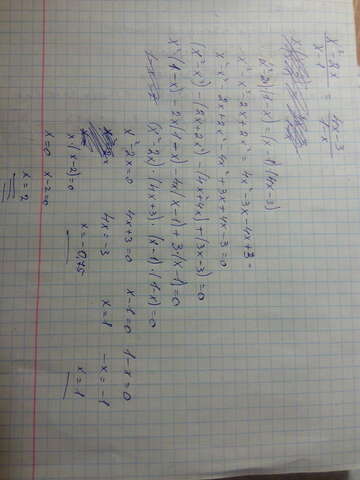 x²-2x / x-1 = 4x-3 / 1-x
(x²-2x)(1-x)=(x-1)(4x-3)
x²-x³-2x+2x²=4x²-3x-4x+3=
x²-x³-2x+2x²-4x²+3x+4x-3=0
(x²-x³)-(2x+2x²)-(4x²-4x)+(3x-3)=0
x²(1-x)-2x(1+x)-4x(x-1)+3(x-1)=0
(x²-2x)·(4x+3)·(x-1)·(1-x)=0
x²-2x=0 4x+3=0 x-1=0 1-x=0
4x=-3 x=1 -x=-1
x(x-2)=0 x=-0,75 x=1
x=0 x-2=0
x=2